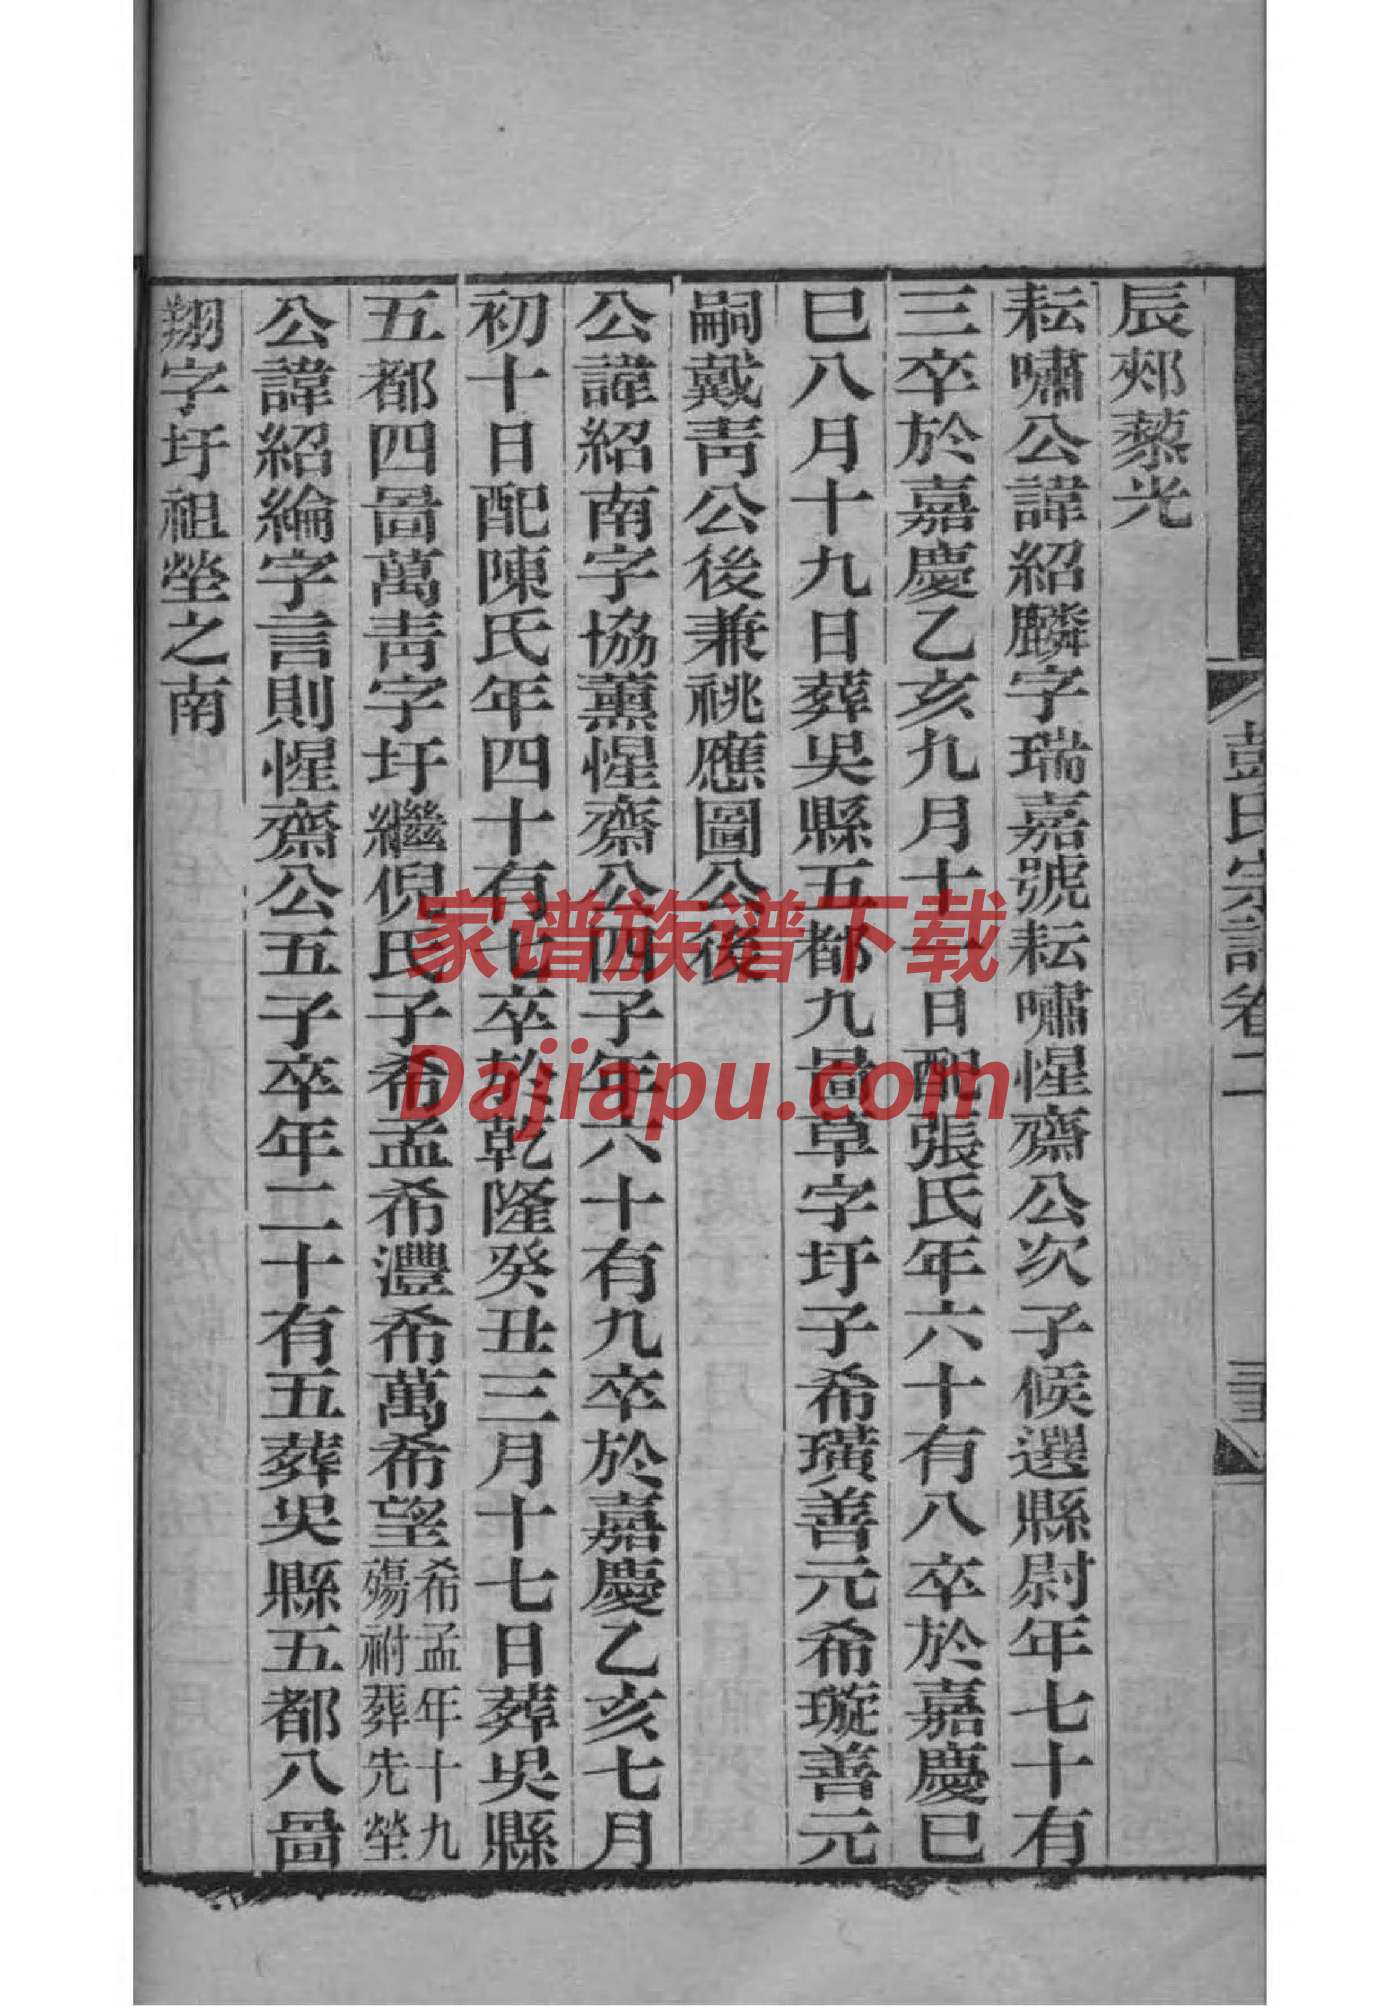 彭氏宗譜卷二
辰郟藜光
耘嘯公諱紹麟字瑞嘉號耘嘯惺齋公次子候選縣尉年七十有
三卒於嘉慶乙亥九月十一日配張氏年六十有八卒於嘉慶己
巳八月十九日葬吳縣五都九啚草字圩子希璜善元希璇善元
嗣戴青公後兼祧應圖公後
公諱紹南字協薰惺齋公四子年六十有九卒於嘉慶乙亥七月
初十日配陳氏年四十有七卒於乾隆癸丑三月十七日葬吳縣
五都四啚萬青字圩繼倪氏子希孟希灃希萬希望希孟年十九殤祔葬先塋
公諱紹綸字言則惺齋公五子卒年二十有五葬吳縣五都八啚
翔字圩祖塋之南
家谱族谱下载
Dajiapu.com